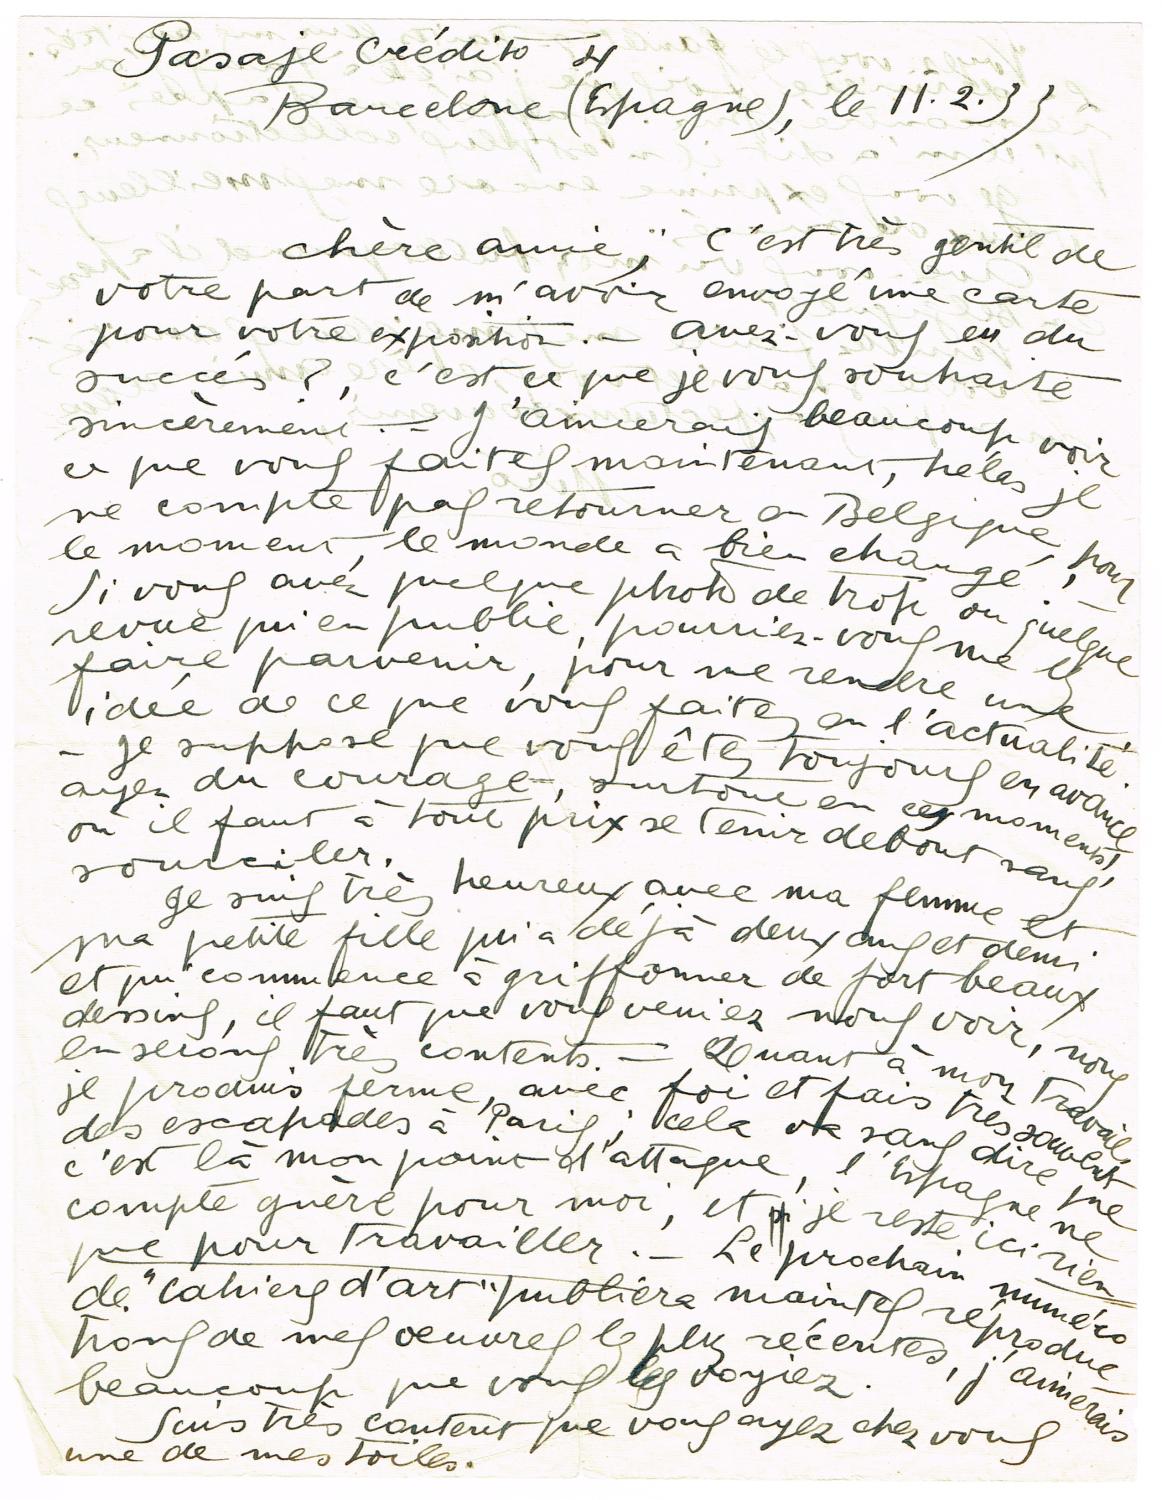 Pasaje Crédito 4
Barcelone (Espagne), le 11.2.33
chère amie; C'est très gentil de
votre part de m'avoir envoyé une carte
pour votre exposition. — avez-vous eu du
succés?, c'est ce que je vous souhaite
sincèrement. — J'aimerais beaucoup voir
ce que vous faites maintenant, hélas je
ne compte pas retourner en Belgique pour
le moment, le monde a bien changé!
Si vous avéz quelque photo de trop ou quelque
revue qui en publie, pourriez-vous me les
faire parvenir, pour me rendre une
idée de ce que vous faites en l'actualité.
— Je suppose que vous êtes toujours en avance
ayez du courage, surtout en ces moments,
où il faut à tout prix se tenir debout sans
sourciler.
Je suis très heureux avec ma femme et
ma petite fille qui a déjà deux ans et demi
et qui commence à griffonner de fort beaux
dessins, il faut que vous veniez nous voir, nous
en serons très contents. — Quant à mon travail,
je produis ferme, avec foi et fais très souvent
des escapades à Paris; cela va sans dire que
c'est là mon point d'attaque, l'Espagne ne
compte guère pour moi, et si je reste ici rien
que pour travailler. — Le prochain numéro
de "Cahiers d'art" publiera maintes réproduc
tions de mes oeuvres les plus récentes, j'aimerais
beaucoup que vous les voyiez.
Suis très content que vous ayez chez vous
une de mes toiles.